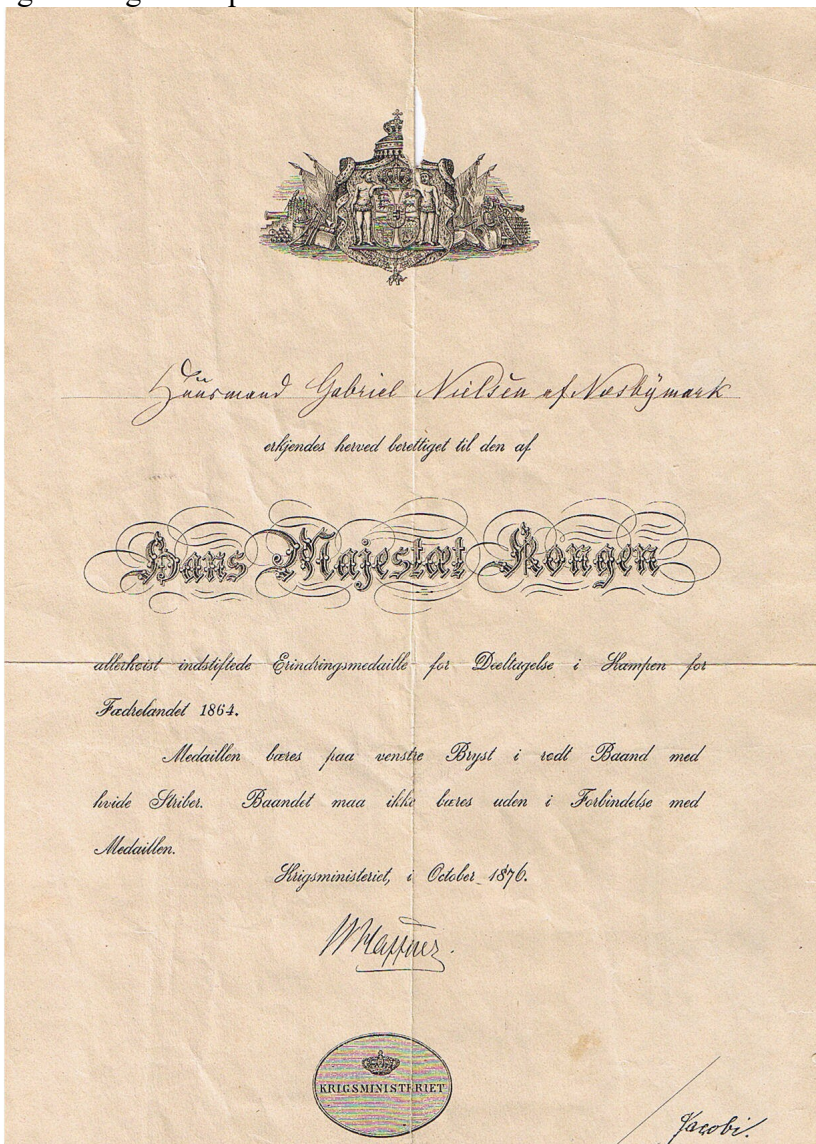 Huusmand Gabriel Nielsen af Næsbymark
erkjendes herved berettiget til den af
Hans Majestæt Kongen
allerhøist indstiftede Erindringsmedaille for Deeltagelse i Kampen for
Fædrelandet 1864.
Medaillen bæres paa venstre Bryst i rødt Baand med
hvide Striber. Baandet maa ikke bæres uden i Forbindelse med
Medaillen.
Krigsministeriet, i October 1876.
W Haffner.
KRIGSMINISTERIET
Jacobi.